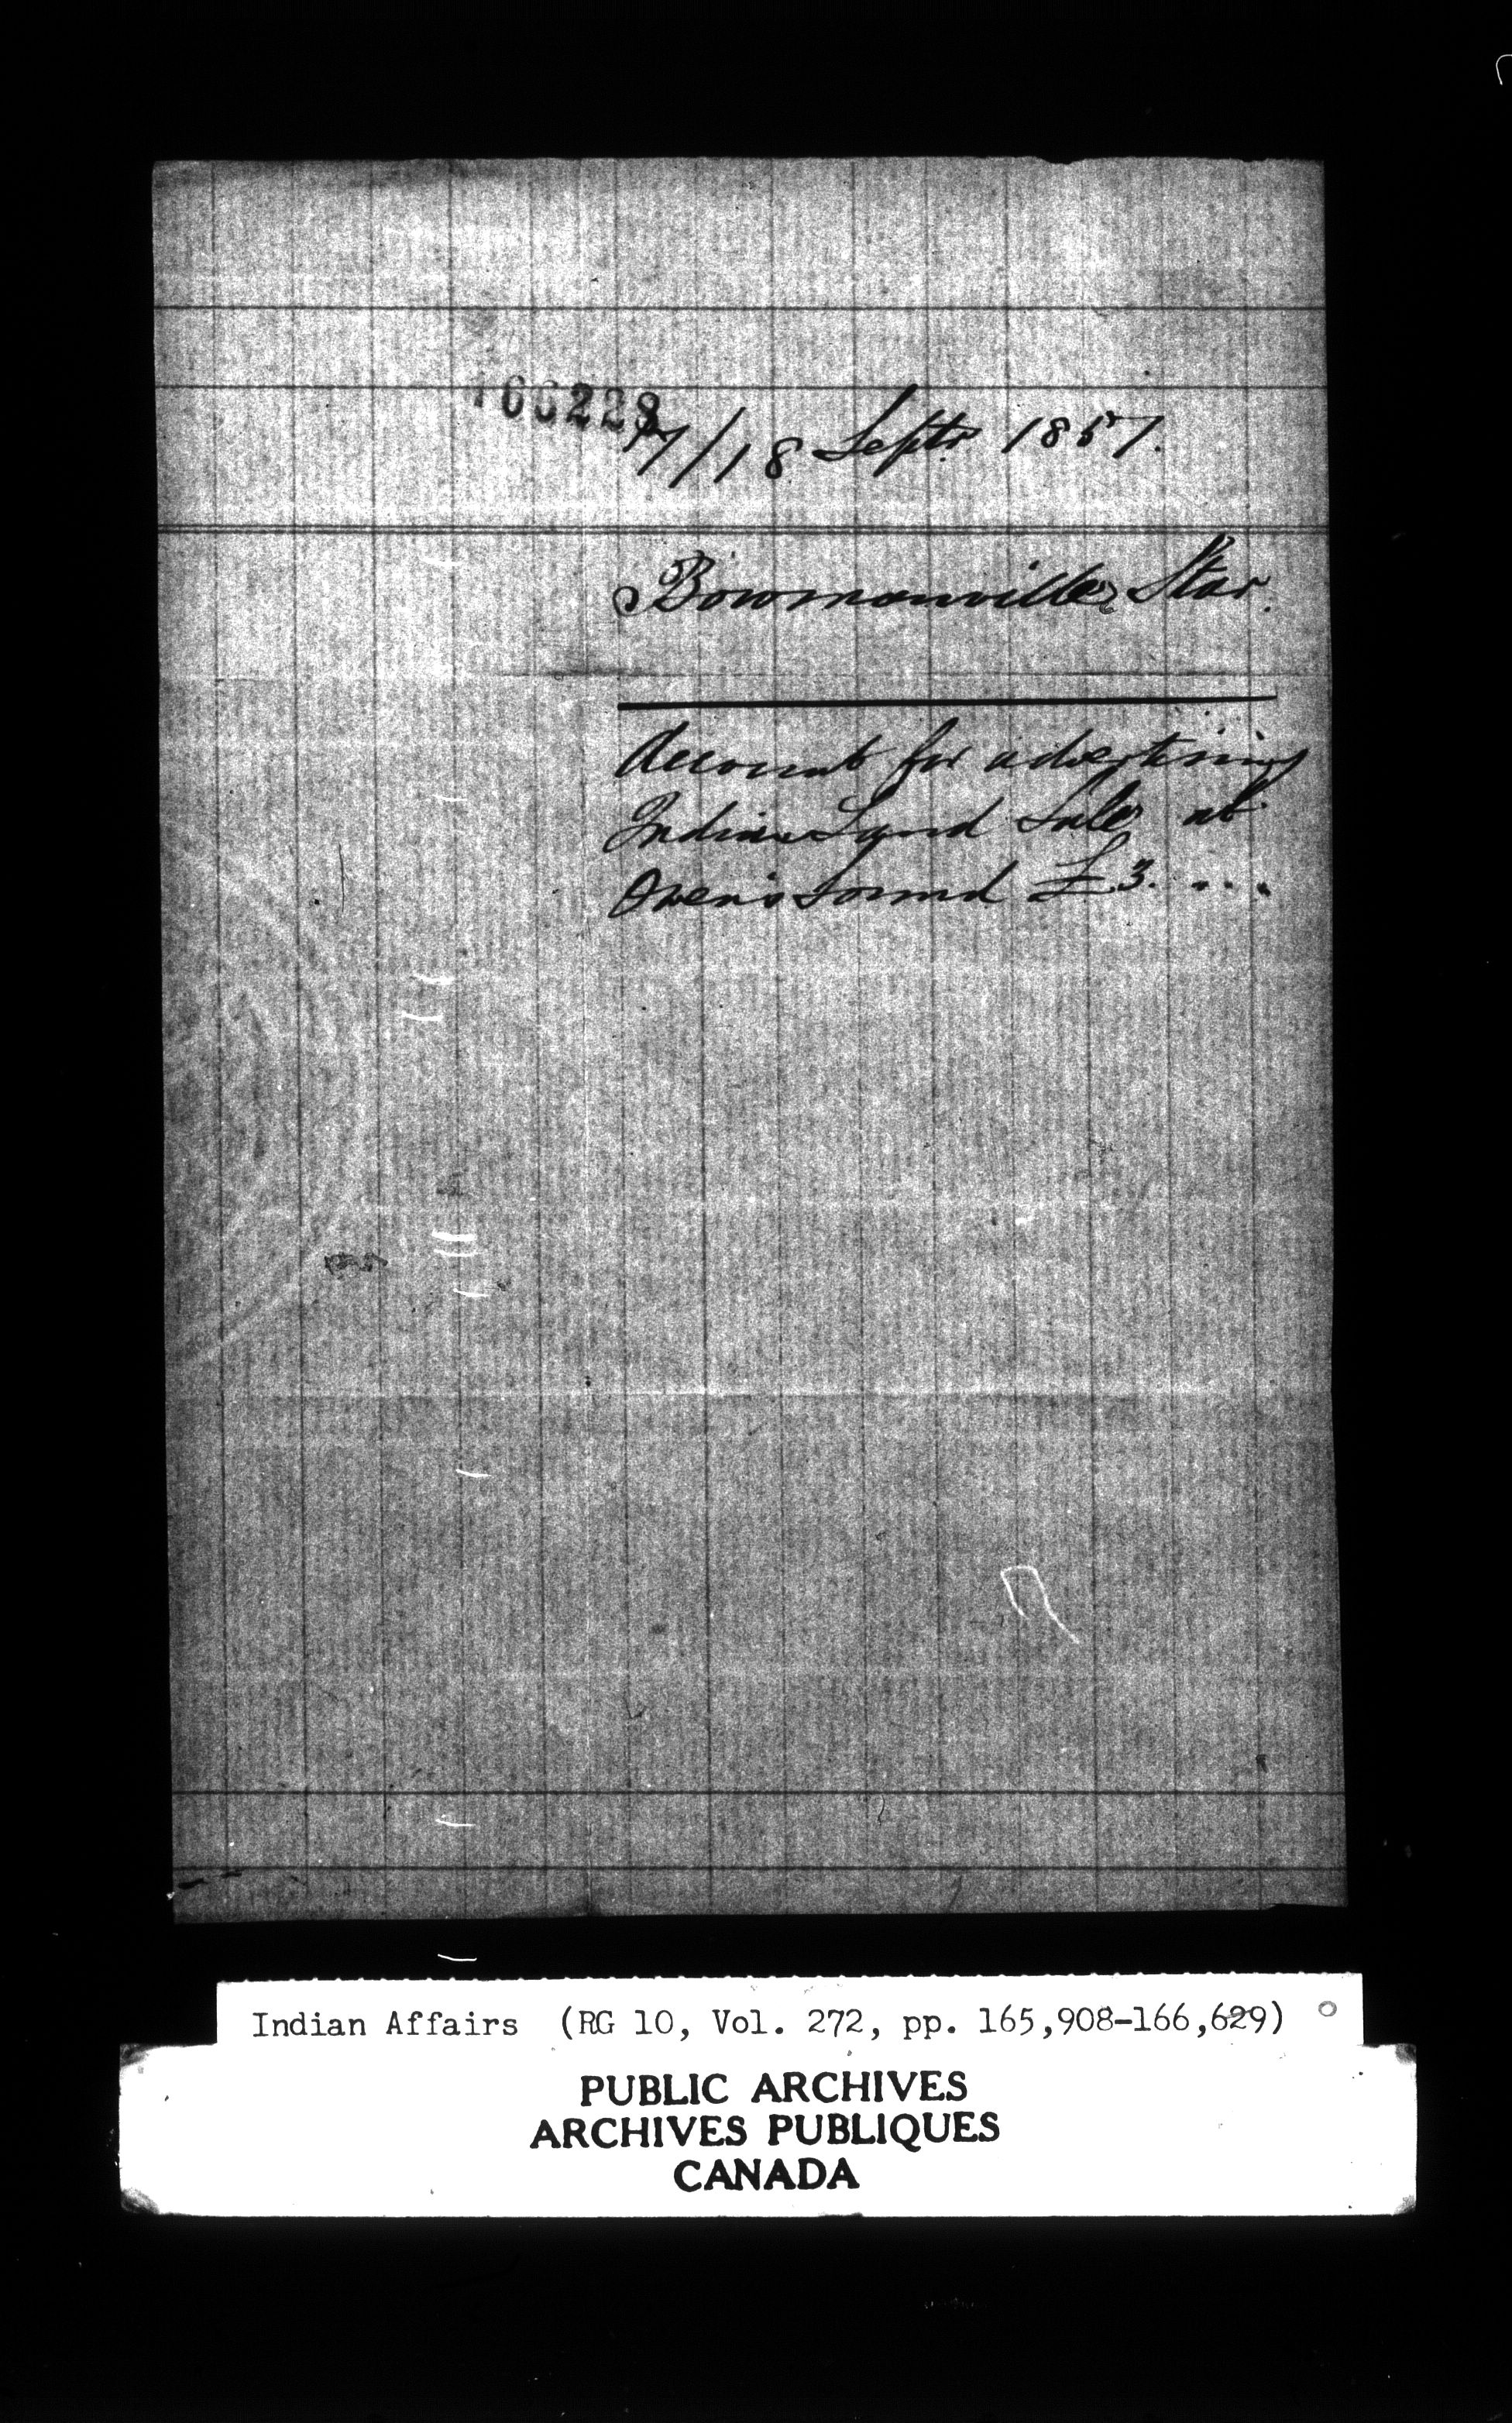 166228
17/18 Septr 1857.
Bowmanville Star.
Account for advertising
Indian Land Sales at
Owen's Sound £3. . . .
Indian Affairs (RG 10, Vol. 272, pp. 165,908-166,629)
PUBLIC ARCHIVES
ARCHIVES PUBLIQUES
CANADA